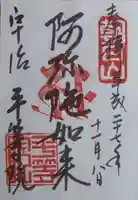 奉拝 平成二十七年
十一月八日
阿弥陀如来
宇治 平等院